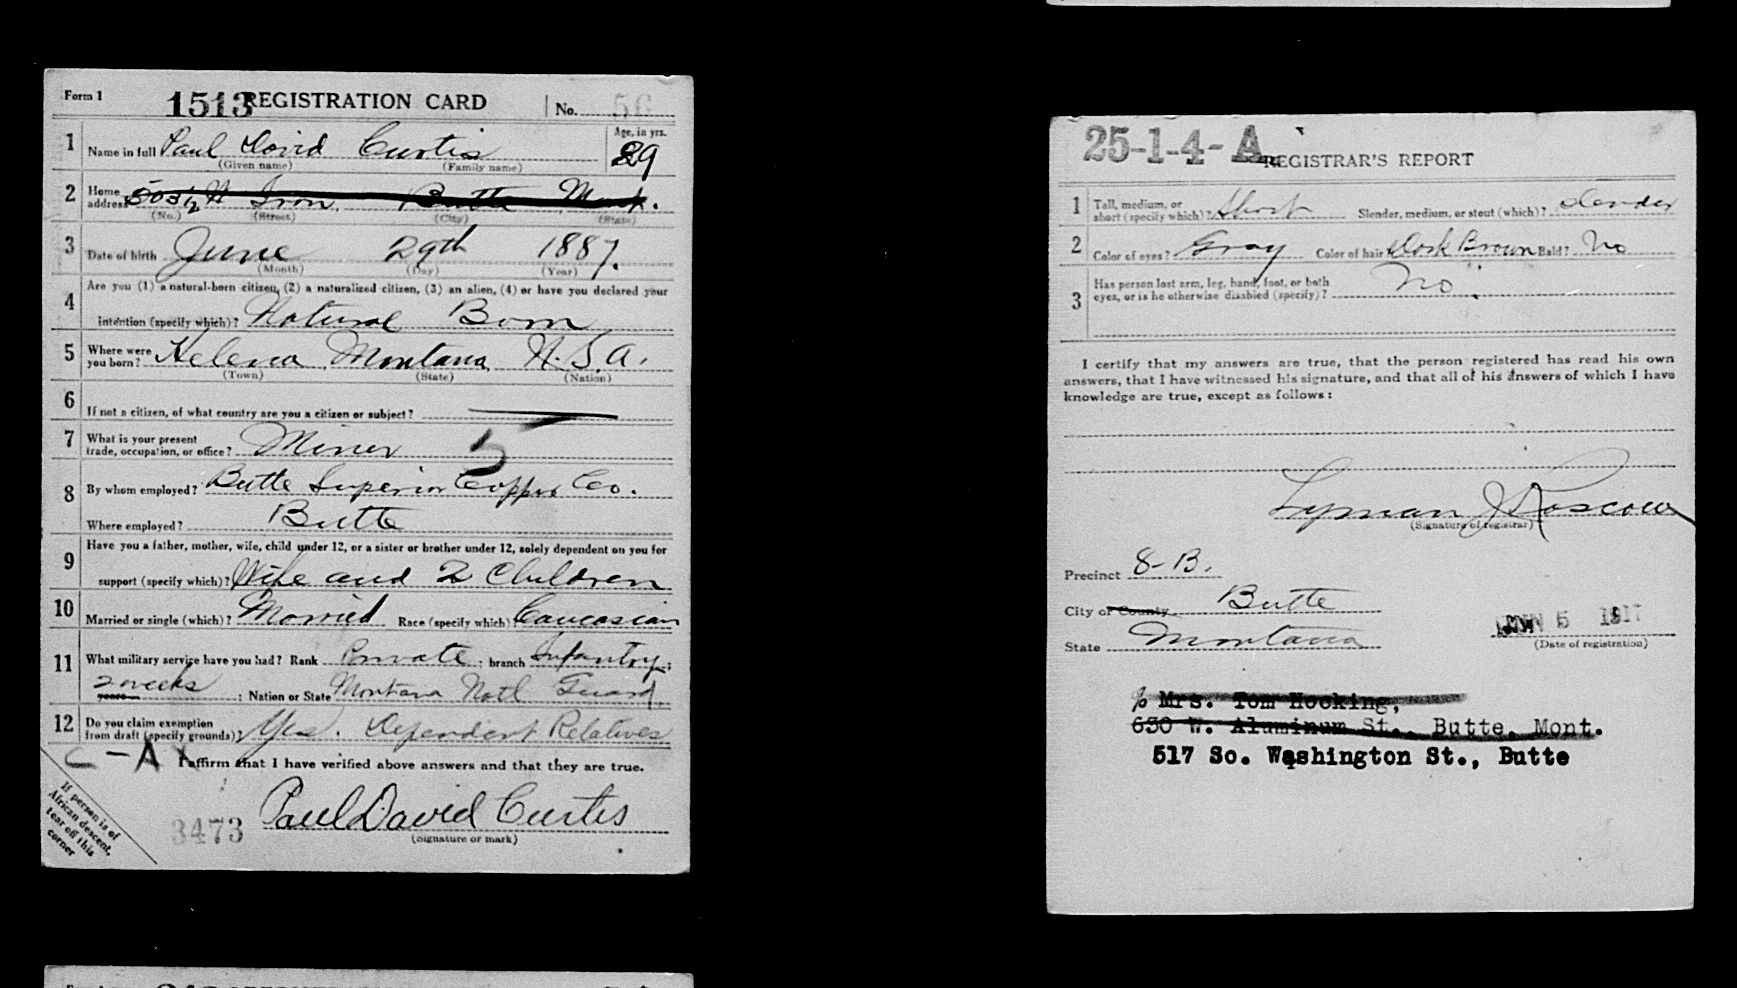 Form 1
1513 REGISTRATION CARD No. 56
1 Name in full Paul David Curtis Age, in yrs. 29
(Given name) (Family name)
2 Home address 503½ W Iron Butte Mont.
(No.) (Street) (City) (State)
3 Date of birth June 29th 1887.
(Month) (Day) (Year)
4 Are you (1) a natural-born citizen, (2) a naturalized citizen, (3) an alien, (4) or have you declared your
intention (specify which)? Natural Born
5 Where were you born? Helena Montana U.S.A.
(Town) (State) (Nation)
6 If not a citizen, of what country are you a citizen or subject?
7 What is your present trade, occupation, or office? Miner 5
8 By whom employed? Butte Superior Copper Co.
Where employed? Butte
9 Have you a father, mother, wife, child under 12, or a sister or brother under 12, solely dependent on you for
support (specify which)? Wife and 2 Children
10 Married or single (which)? Married Race (specify which) Caucasian
11 What military service have you had? Rank Private ; branch Infantry ;
2 weeks years ; Nation or State Montana Natl Guard
12 Do you claim exemption from draft (specify grounds)? Yes. Dependent Relatives
C-A
I affirm that I have verified above answers and that they are true.
If person is of African descent, tear off this corner
3473 Paul David Curtis
(Signature or mark)
25-1-4-A REGISTRAR'S REPORT
1 Tall, medium, or short (specify which)? Short Slender, medium, or stout (which)? Slender
2 Color of eyes? Gray Color of hair Dark Brown Bald? No
3 Has person lost arm, leg, hand, foot, or both eyes, or is he otherwise disabled (specify)? No.
I certify that my answers are true, that the person registered has read his own
answers, that I have witnessed his signature, and that all of his answers of which I have
knowledge are true, except as follows:
Lyman J
(Signature of registrar)
Precinct 8-B.
City or County Butte
State Montana JUN 5 1917
(Date of registration)
% Mrs. Tom Hocking,
630 W. Aluminum St., Butte, Mont.
517 So. Washington St., Butte